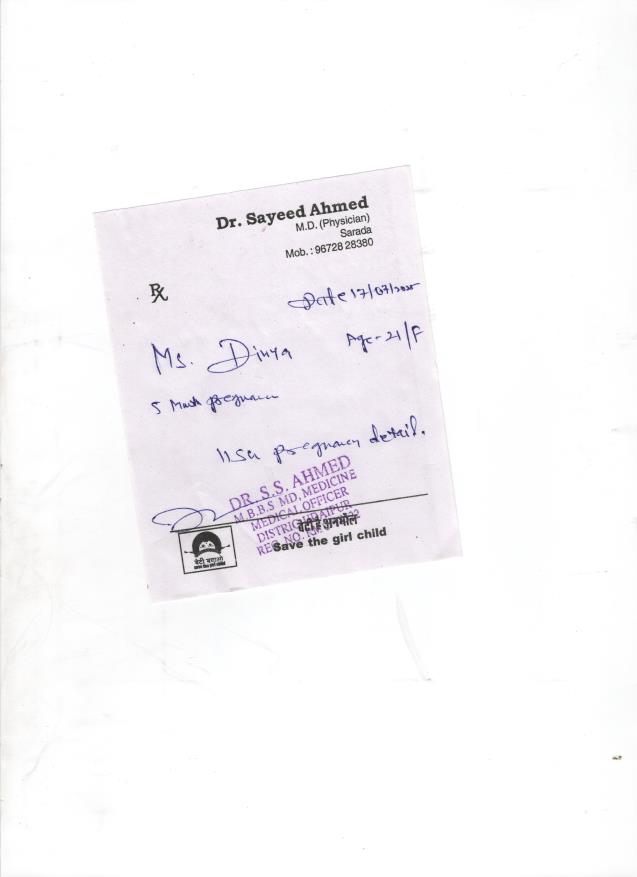 Dr. Sayeed Ahmed
M.D. (Physician)
Sarada
Mob. : 96728 28380
Rx
Date 17/07/2025
Ms. Divya Age - 21/F
5 Month pregnancy
USG pregnancy detail.
DR. S.S. AHMED
M.B.B.S MD, MEDICINE
MEDICAL OFFICER
DISTRICT UDAIPUR
REG. NO.
बेटी है अनमोल
Save the girl child
बेटी बचाओ
save the girl child